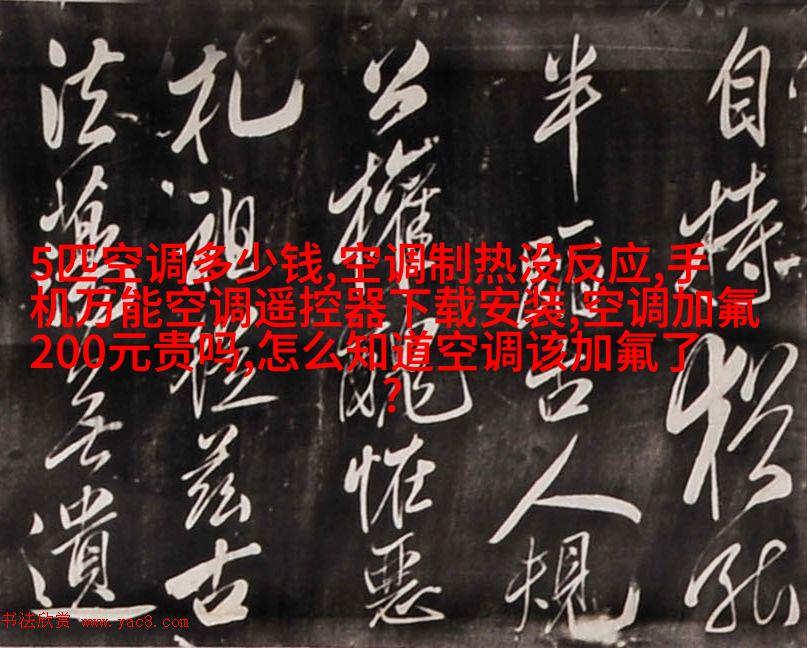 自持猶能
半蹈古人規
公權醜怪惡
札祖從茲古
法蕩無遺
5匹空调多少钱,空调制热没反应,手
机万能空调遥控器下载安装,空调加氟
200元贵吗,怎么知道空调该加氟了
?
书法欣赏 www.yac8.com